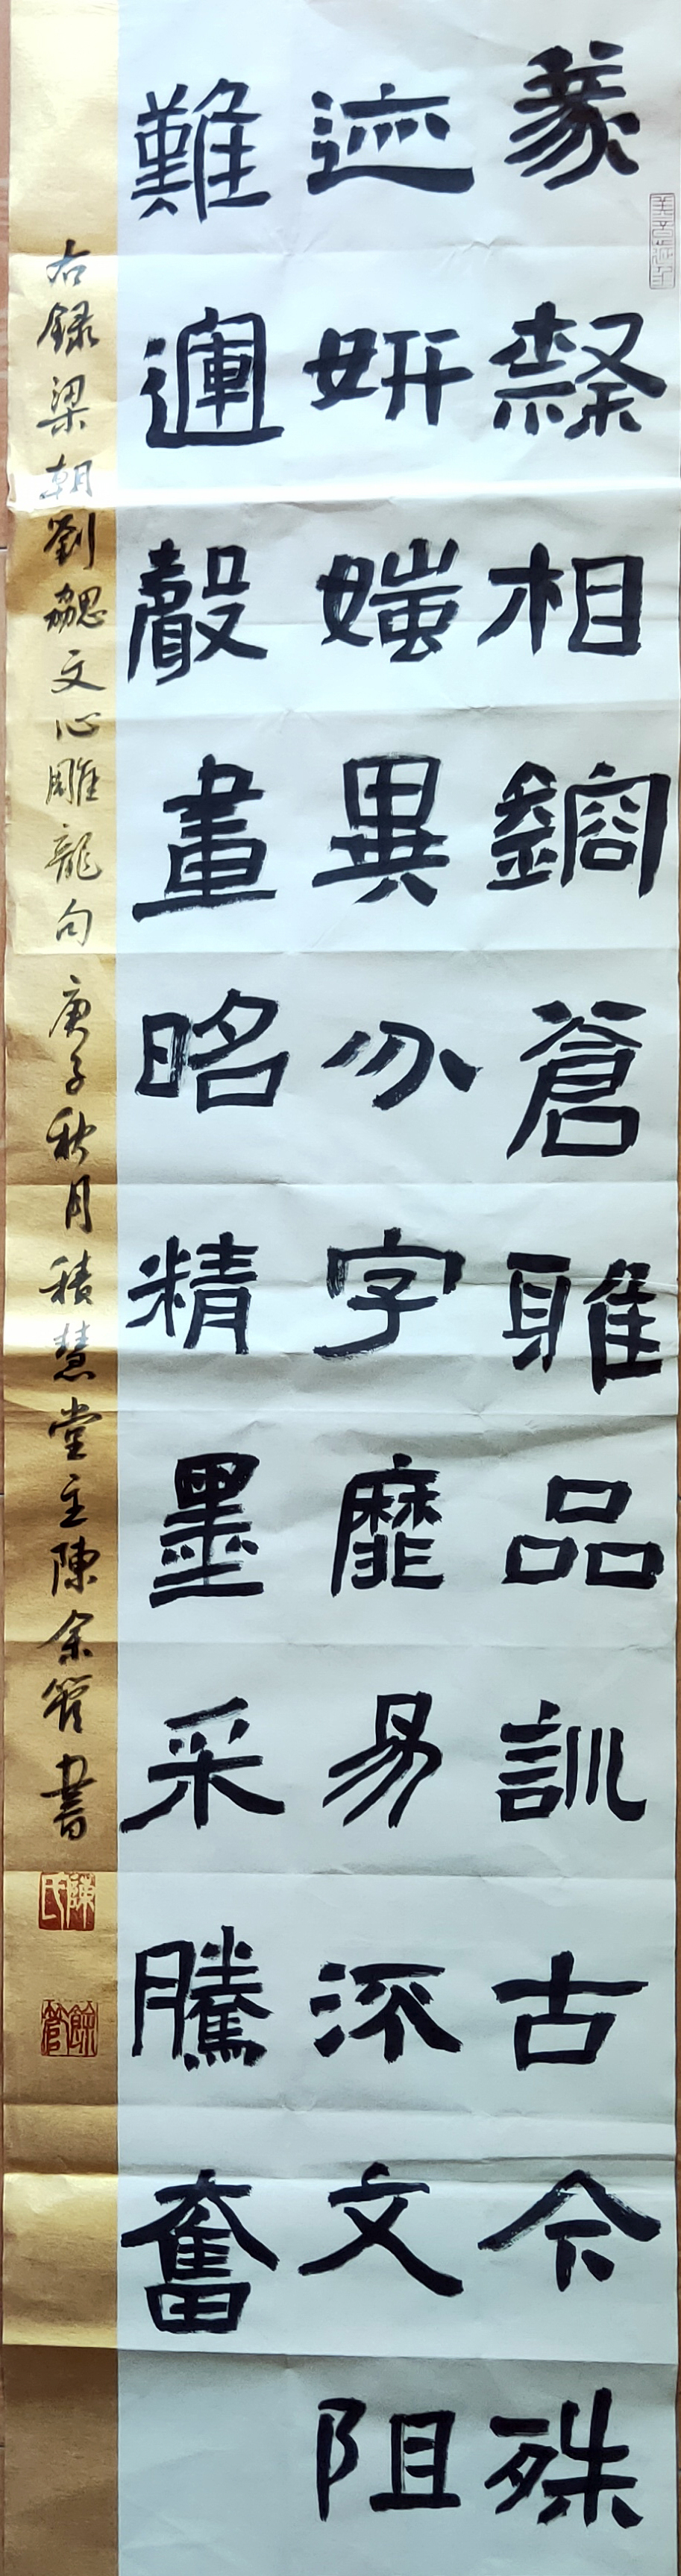 篆隸相鎔蒼雅品訓古今殊
迹妍媸異分字靡易流文阻
難運聲畫昭精墨采騰奮
右録梁朝劉勰文心雕龍句庚子秋月積慧堂主陳余管書
陳氏
餘管